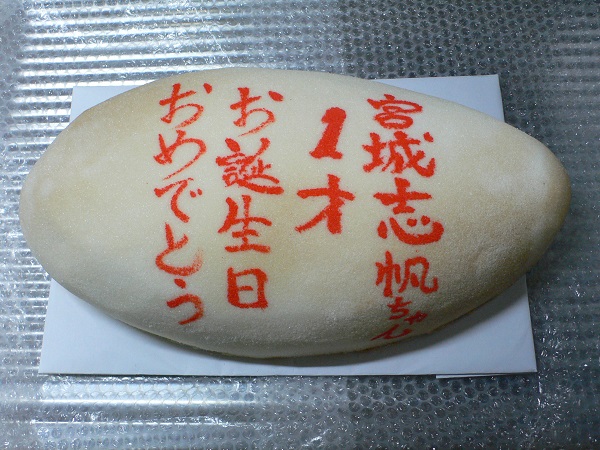 宮城志帆ちゃん
1才
お誕生日
おめでとう